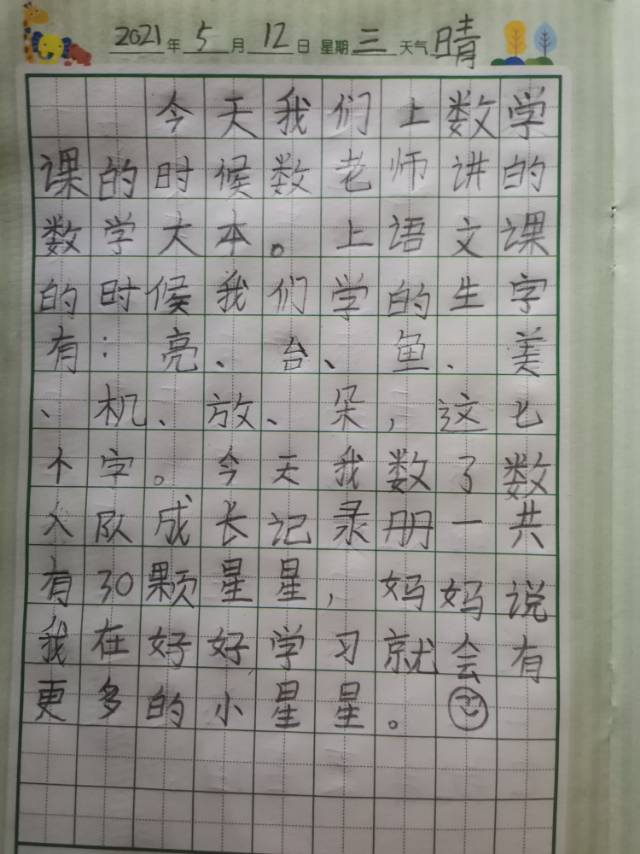 2021年5月12日 星期三 天气晴
今天我们上数学
课的时候数老师讲的
数学大本。上语文课
的时候我们学的生字
有:亮、台、鱼、美
、机、放、朵,这七
个字。今天我数了数
入队成长记录册一共
有30颗星星,妈妈说
我在好好学习就会有
更多的小星星。